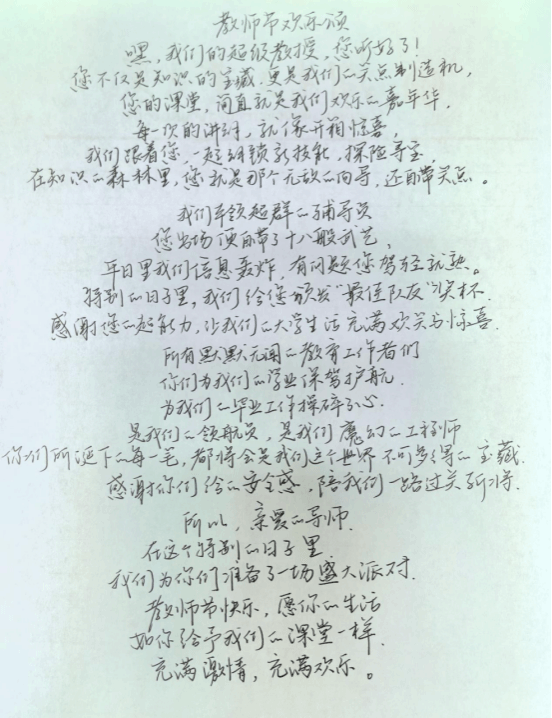 教师节欢乐颂
嘿，我们的超级教授，您听好了！
您不仅是知识的宝藏，更是我们的笑点制造机，
您的课堂，简直就是我们欢乐的嘉年华，
每一次的讲课，就像开箱惊喜，
我们跟着您，一起解锁新技能，探险寻宝
在知识的森林里，您就是那个无敌的向导，还自带笑点。
我们本领超群的辅导员
您出场便自带了十八般武艺，
平日里我们信息轰炸，有问题您驾轻就熟。
特别的日子里，我们给您颁发"最佳队友"奖杯.
感谢您的超能力，让我们的大学生活充满欢笑与惊喜.
所有默默无闻的教育工作者们
你们为我们的学业保驾护航.
为我们的毕业工作操碎了心.
是我们的领航员，是我们魔幻的工程师
你们所写下的每一笔，都将会是我们这个世界不可多得的宝藏.
感谢你们给的安全感，陪我们一路过关斩将.
所以，亲爱的导师.
在这个特别的日子里
我们为你们准备了一场盛大派对.
教师节快乐，愿你的生活
如你给予我们的课堂一样.
充满激情，充满欢乐。